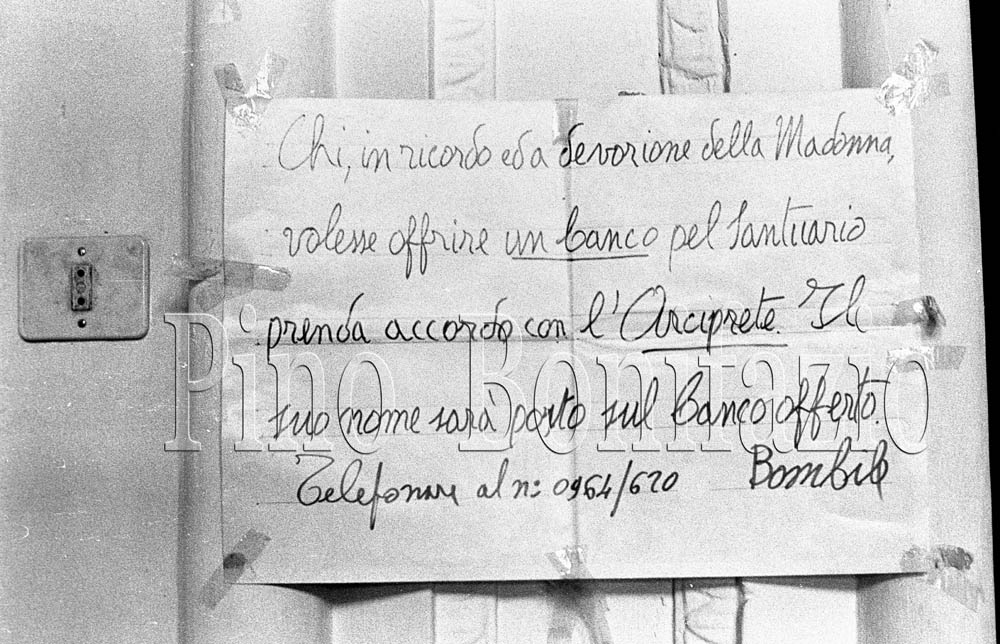 Chi, in ricordo ed a devozione della Madonna,
volesse offrire un banco pel Santuario
prenda accordo con l'Arciprete. Il
suo nome sarà posto sul banco offerto.
Telefonare al n: 0964/620 Bombile
Pino Bonitazzo